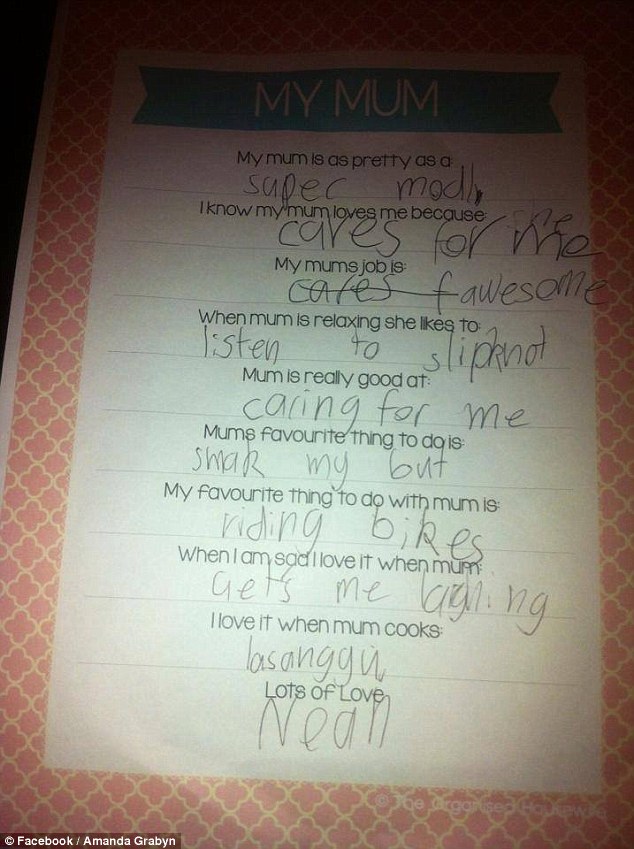 MY MUM
My mum is as pretty as a:
super modl
I know my mum loves me because:
she
cares for me
My mums job is:
cares f awesome
When mum is relaxing she likes to:
listen to slipknot
Mum is really good at:
caring for me
Mums favourite thing to do is:
smak my but
My favourite thing to do with mum is:
riding bikes
When I am sad I love it when mum:
gets me laghing
I love it when mum cooks:
Lots of Love
© The Organised Housewife
© Facebook / Amanda Grabyn